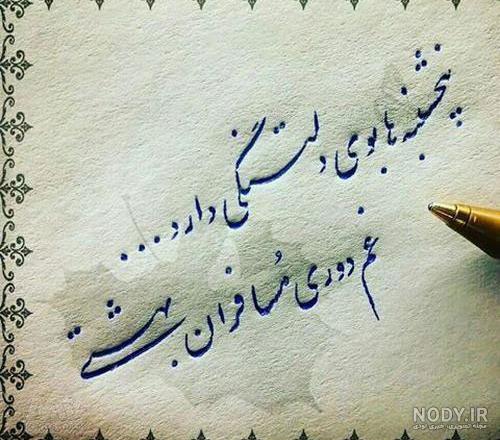 پنجشنبه ها بوی دلتنگی دارد...
غم دوری مسافران بهشتی
NODY.IR
مجله تصویری، خبری نودی